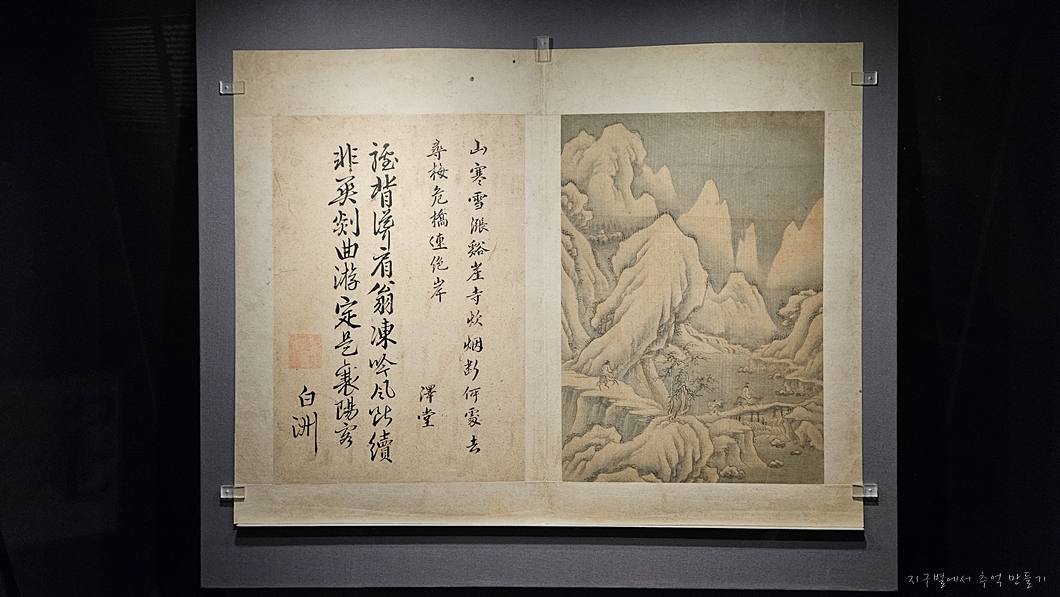 山寒雪漲谿崖寺炊烟斷何處去
尋梅危橋連絶岸
澤堂
背肩翁凍吟風續
非剡曲游定是襄陽客
白洲
지구별에서 추억 만들기